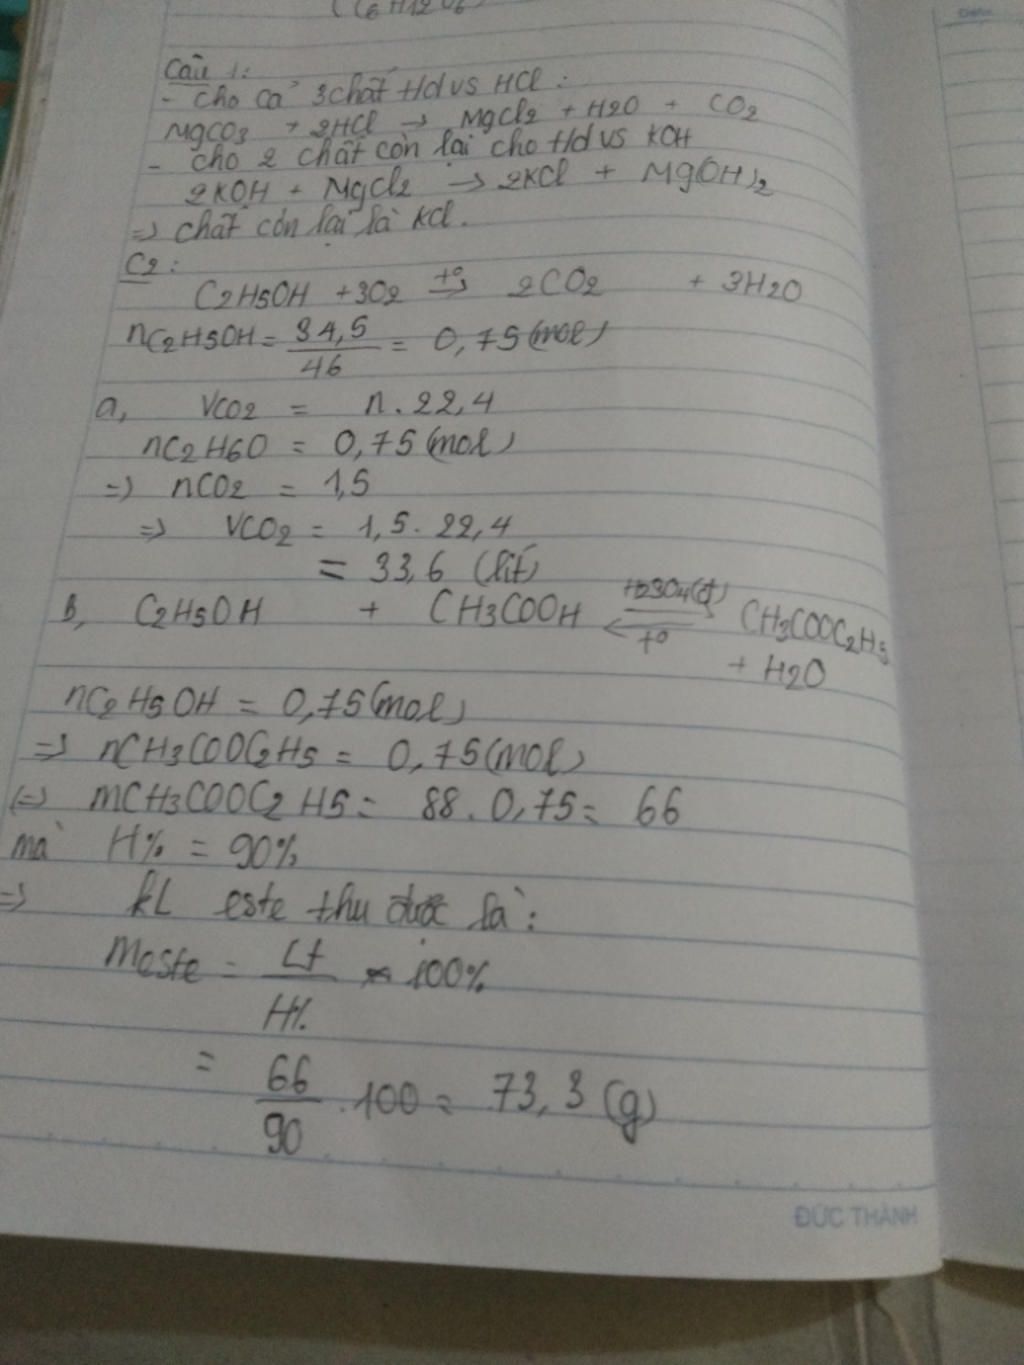 (C6H12O6)
Câu 1:
- cho cả 3 chất t/d vs HCl :
MgCO3 + 2HCl → MgCl2 + H2O + CO2
- cho 2 chất còn lại cho t/d vs KOH
2KOH + MgCl2 → 2KCl + Mg(OH)2
=> chất còn lại là KCl.
C2:
C2H5OH + 3O2 t° → 2CO2 + 3H2O
nC2H5OH = 34,5/46 = 0,75 (mol)
a, VCO2 = n . 22,4
nC2H6O = 0,75 (mol)
=> nCO2 = 1,5
=> VCO2 = 1,5 . 22,4
= 33,6 (lít)
b, C2H5OH + CH3COOH ⇌ H2SO4(đ) t° CH3COOC2H5
+ H2O
nC2H5OH = 0,75 (mol)
=> nCH3COOC2H5 = 0,75 (mol)
(=) mCH3COOC2H5 = 88 . 0,75 = 66
mà H% = 90%
=> kL este thu được là :
Meste = Lt/H% × 100%
= 66/90 . 100 = 73,3 (g)
ĐỨC THÀNH